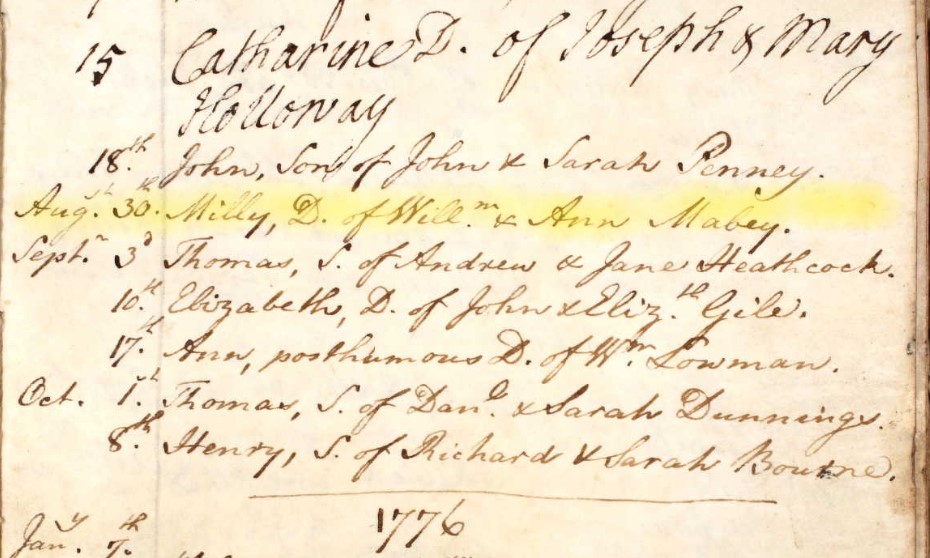 15 Catharine D. of Joseph & Mary
Holloway
18.th John, Son of John & Sarah Penney.
Aug.st 30.th Milly, D. of Will.m & Ann Mabey.
Sept.r 3d Thomas, S. of Andrew & Jane Heathcock.
10.th Elizabeth, D. of John & Eliz.th Gile.
17.th Ann, posthumous D. of Wm. Lowman.
Oct. 1.st Thomas, S. of Dan.l & Sarah Dunnings.
8.th Henry, S. of Richard & Sarah Bourne.
1776
Jan.y 7.th